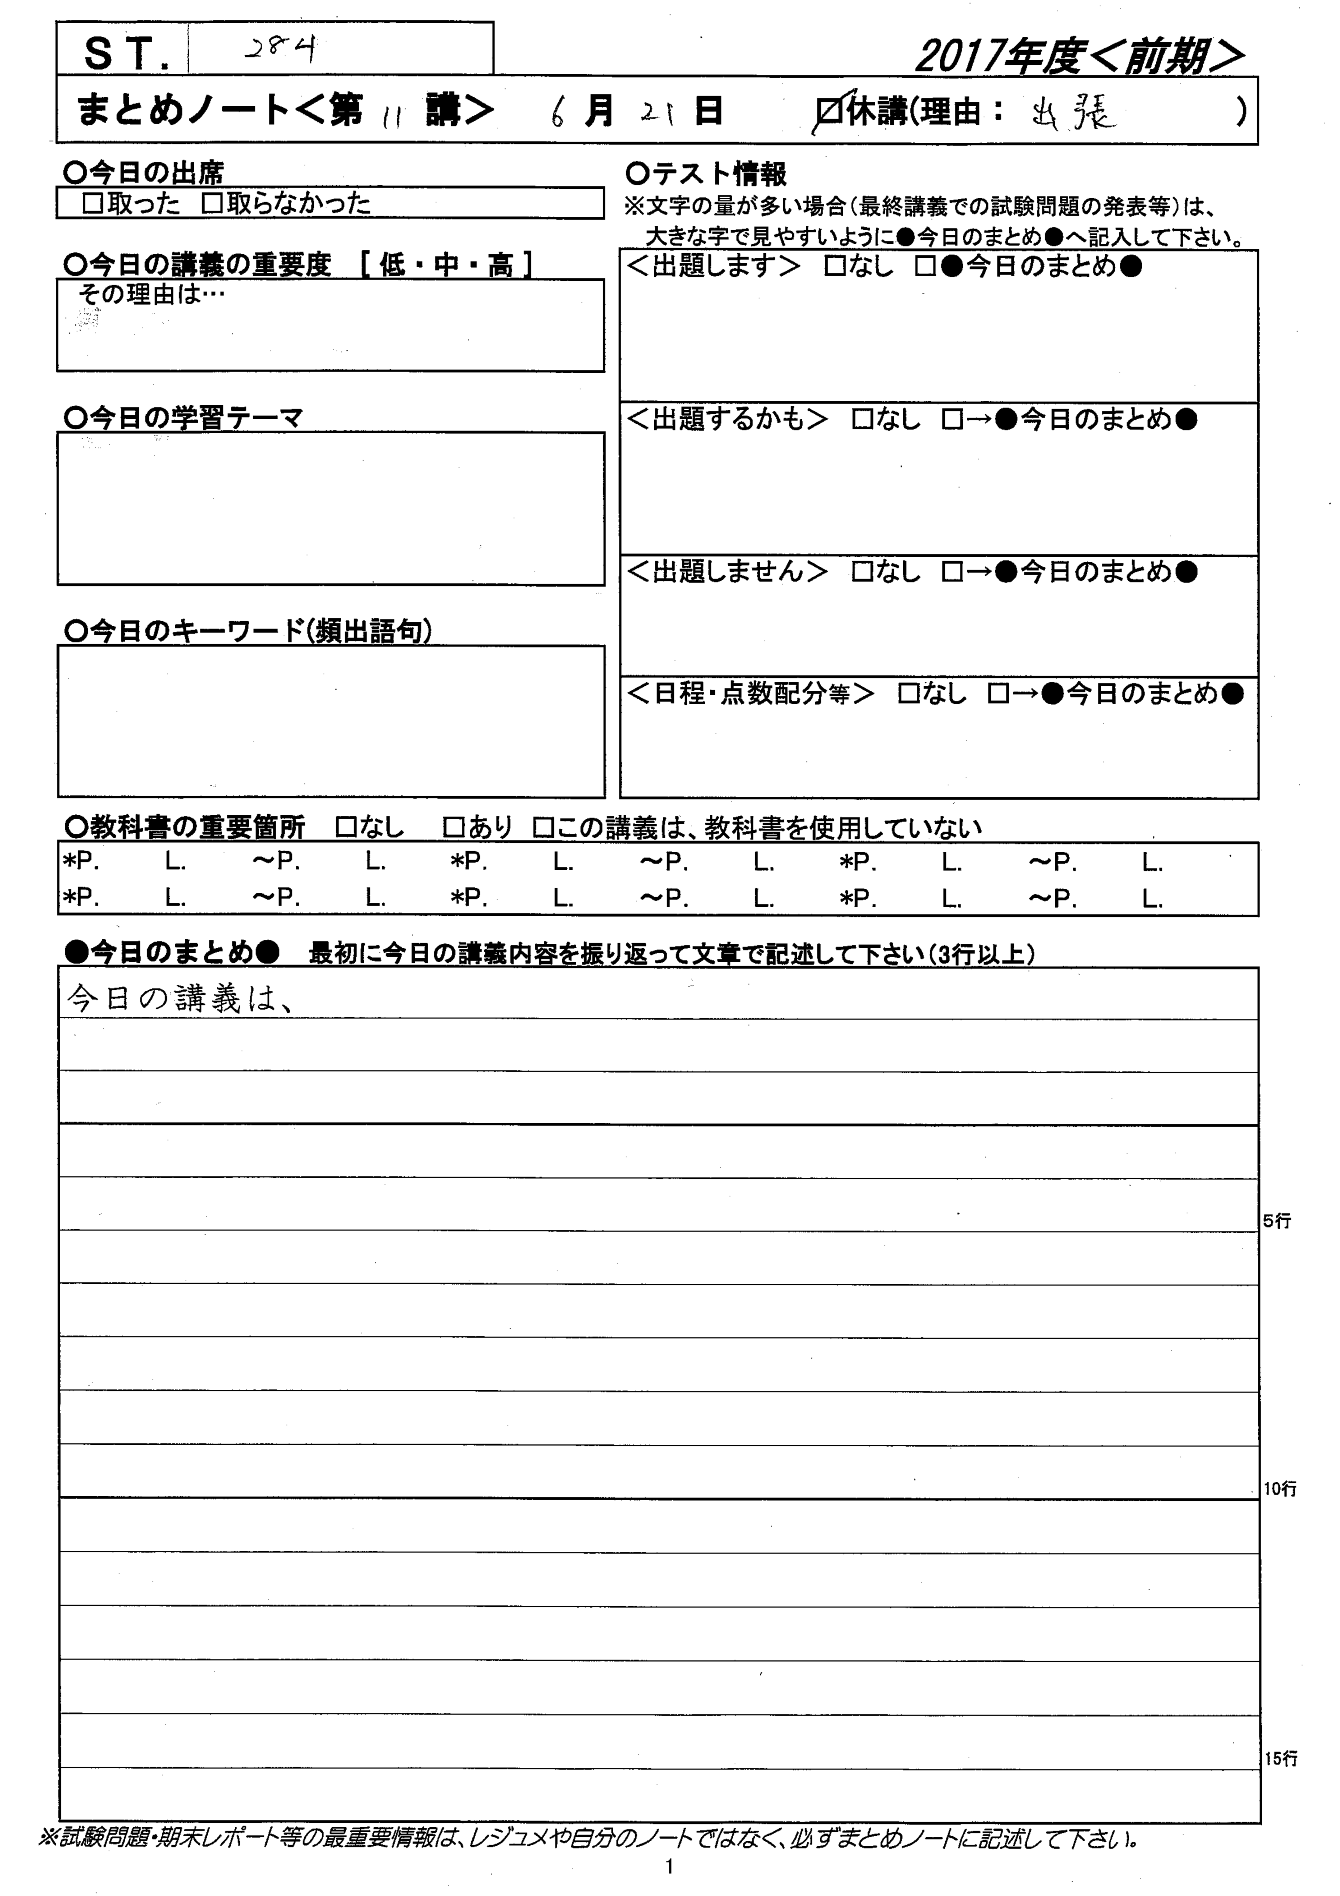 ST. 284
2017年度＜前期＞
まとめノート＜第 11 講＞ 6月21日 ☑休講(理由： 出張 )
○今日の出席
□取った □取らなかった
○今日の講義の重要度 [ 低・中・高 ]
その理由は…
○今日の学習テーマ
○今日のキーワード(頻出語句)
○テスト情報
※文字の量が多い場合(最終講義での試験問題の発表等)は、
大きな字で見やすいように●今日のまとめ●へ記入して下さい。
＜出題します＞ □なし □●今日のまとめ●
＜出題するかも＞ □なし □→●今日のまとめ●
＜出題しません＞ □なし □→●今日のまとめ●
＜日程・点数配分等＞ □なし □→●今日のまとめ●
○教科書の重要箇所 □なし □あり □この講義は、教科書を使用していない
*P. L. ～P. L. *P. L. ～P. L. *P. L. ～P. L.
*P. L. ～P. L. *P. L. ～P. L. *P. L. ～P. L.
●今日のまとめ● 最初に今日の講義内容を振り返って文章で記述して下さい(3行以上)
今日の講義は、
5行
10行
15行
※試験問題・期末レポート等の最重要情報は、レジュメや自分のノートではなく、必ずまとめノートに記述して下さい。
1